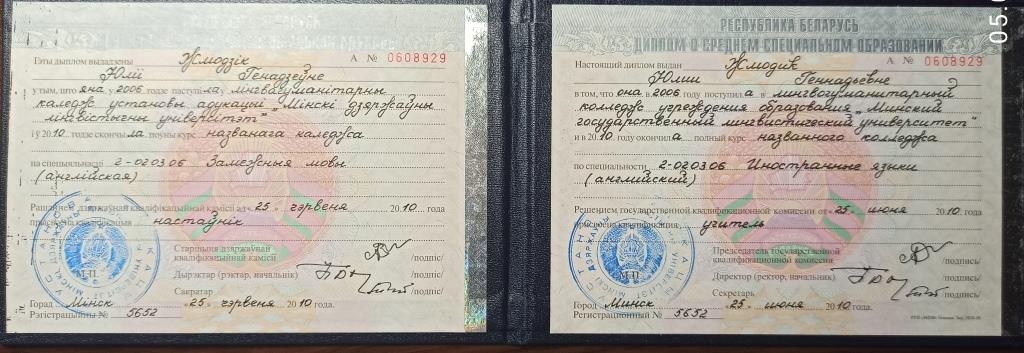 Гэты дыплом выдадзены Жмодзік А № 0608929
Юліі Генадзеўне
у тым, што яна ў 2006 годзе паступіла ў лінгвагуманітарны
каледж установы адукацыі "Мінскі дзяржаўны
лінгвістычны універсітэт"
і ў 2010 годзе скончыла поўны курс названага каледжа
па спецыяльнасці 2-02 03 06 Замежныя мовы
(англійская)
Рашэннем дзяржаўнай кваліфікацыйнай камісіі ад « 25 » чэрвеня 2010 года
прысвоена кваліфікацыя настаўнік
Старшыня дзяржаўнай
кваліфікацыйнай камісіі /подпіс/
М.П. Дырэктар (рэктар, начальнік) /подпіс/
Сакратар /подпіс/
Горад Мінск « 25 » чэрвеня 2010 года.
Рэгістрацыйны № 5652
РЕСПУБЛИКА БЕЛАРУСЬ
ДИПЛОМ О СРЕДНЕМ СПЕЦИАЛЬНОМ ОБРАЗОВАНИИ
Настоящий диплом выдан Жмодик А № 0608929
Юлии Геннадьевне
в том, что она в 2006 году поступила в лингвогуманитарный
колледж учреждения образования "Минский
государственный лингвистический университет"
и в 2010 году окончила полный курс названного колледжа
по специальности 2-02 03 06 Иностранные языки
(английский)
Решением государственной квалификационной комиссии от « 25 » июня 2010 года
присвоена квалификация учитель
Председатель государственной
квалификационной комиссии /подпись/
М.П. Директор (ректор, начальник) /подпись/
Секретарь /подпись/
Город Минск « 25 » июня 2010 года.
Регистрационный № 5652